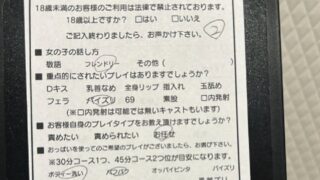 18歳未満のお客様のご利用は法律で禁止されております。
18歳以上ですか？　□はい　□いいえ
ご記入終わりましたら、お声かけ下さい。　2
■ 女の子の話し方
敬語　フレンドリー　その他(　　)
■ 重点的にされたいプレイはありますでしょうか？
Dキス　乳首なめ　全身リップ　指入れ　玉舐め
フェラ　パイズリ　69　素股　□内発射
(※□内発射は可能では無いキャストもいます)
■ お客様自身のプレイタイプをお教え頂けますでしょうか？
責めたい　責められたい　お任せ
■ おっぱいを使ってのご希望のプレイがございましたら、お選び下さい。
※30分コース1つ、45分コース2つ位が目安になります。
ボディー洗い　パフパフ　オッパイビンタ　パイズリ